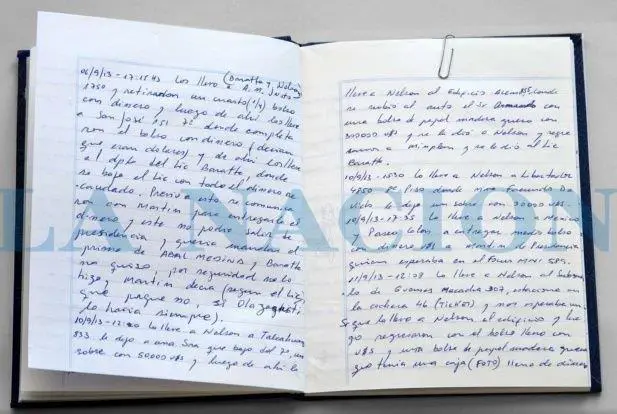 06/9/13 - 17:15 Hs los llevo (Baratta y Nelson)
a A. M. Justo
1750 y retiraron un cuarto (1/4) bolso
con dinero y luego de ahi los lleve
a San José 151 7º donde completa
ron el bolso con dinero (decian
que eran dolares) y de ahi los lleve
al dpto del Lic Baratta, donde
se bajo el Lic con todo el dinero re
caudado. Previo a esto se comunica
ron con Martin para entregarle el
dinero y este no podia salir de
presidencia y queria mandar al
primo de ABAL MEDINA y Baratta
no quiso, por seguridad no lo
hizo y Martin decia (segun el Lic)
que porque no, si Olazagasti
lo hacia siempre).
10/9/13 - 12:20 lo lleve a Nelson a Talcahuano
833 le dejo a una Sra que bajo del 7º, un
sobre con 50000 u$s y luego de ahi lo
lleve a Nelson al edificio Alem 855, donde
se subio al auto el Sr Armando con
una bolsa de papel madera quera con
300000 u$s y se lo dió a Nelson y regre
samos a Minplan y se le dió al Lic
Baratta.
10/9/13 - 1530 lo lleve a Nelson a Libertador
4850 Piso donde Facundo De
Vido le dejo un sobre con u$s.
10/9/13 - 17:35 lo lleve a Nelson a Mexico
y Paseo Colon a entregar medio bolso
con dinero u$s a Martin de Presidencia
quien esperaba en el Focus MMI 589.
11/9/13 - 12:08 lo lleve a Nelson al subsue
lo de Guemes Macacha 307, estacione en
la cochera 46 (Ticket) y nos esperaba un
Sr que lo llevo a Nelson al edificio y lue
go regresaron con el bolso lleno con
u$s y una bolsa de papel madera quera
que tenia una caja (FOTO) llena de dinero
LA NACION